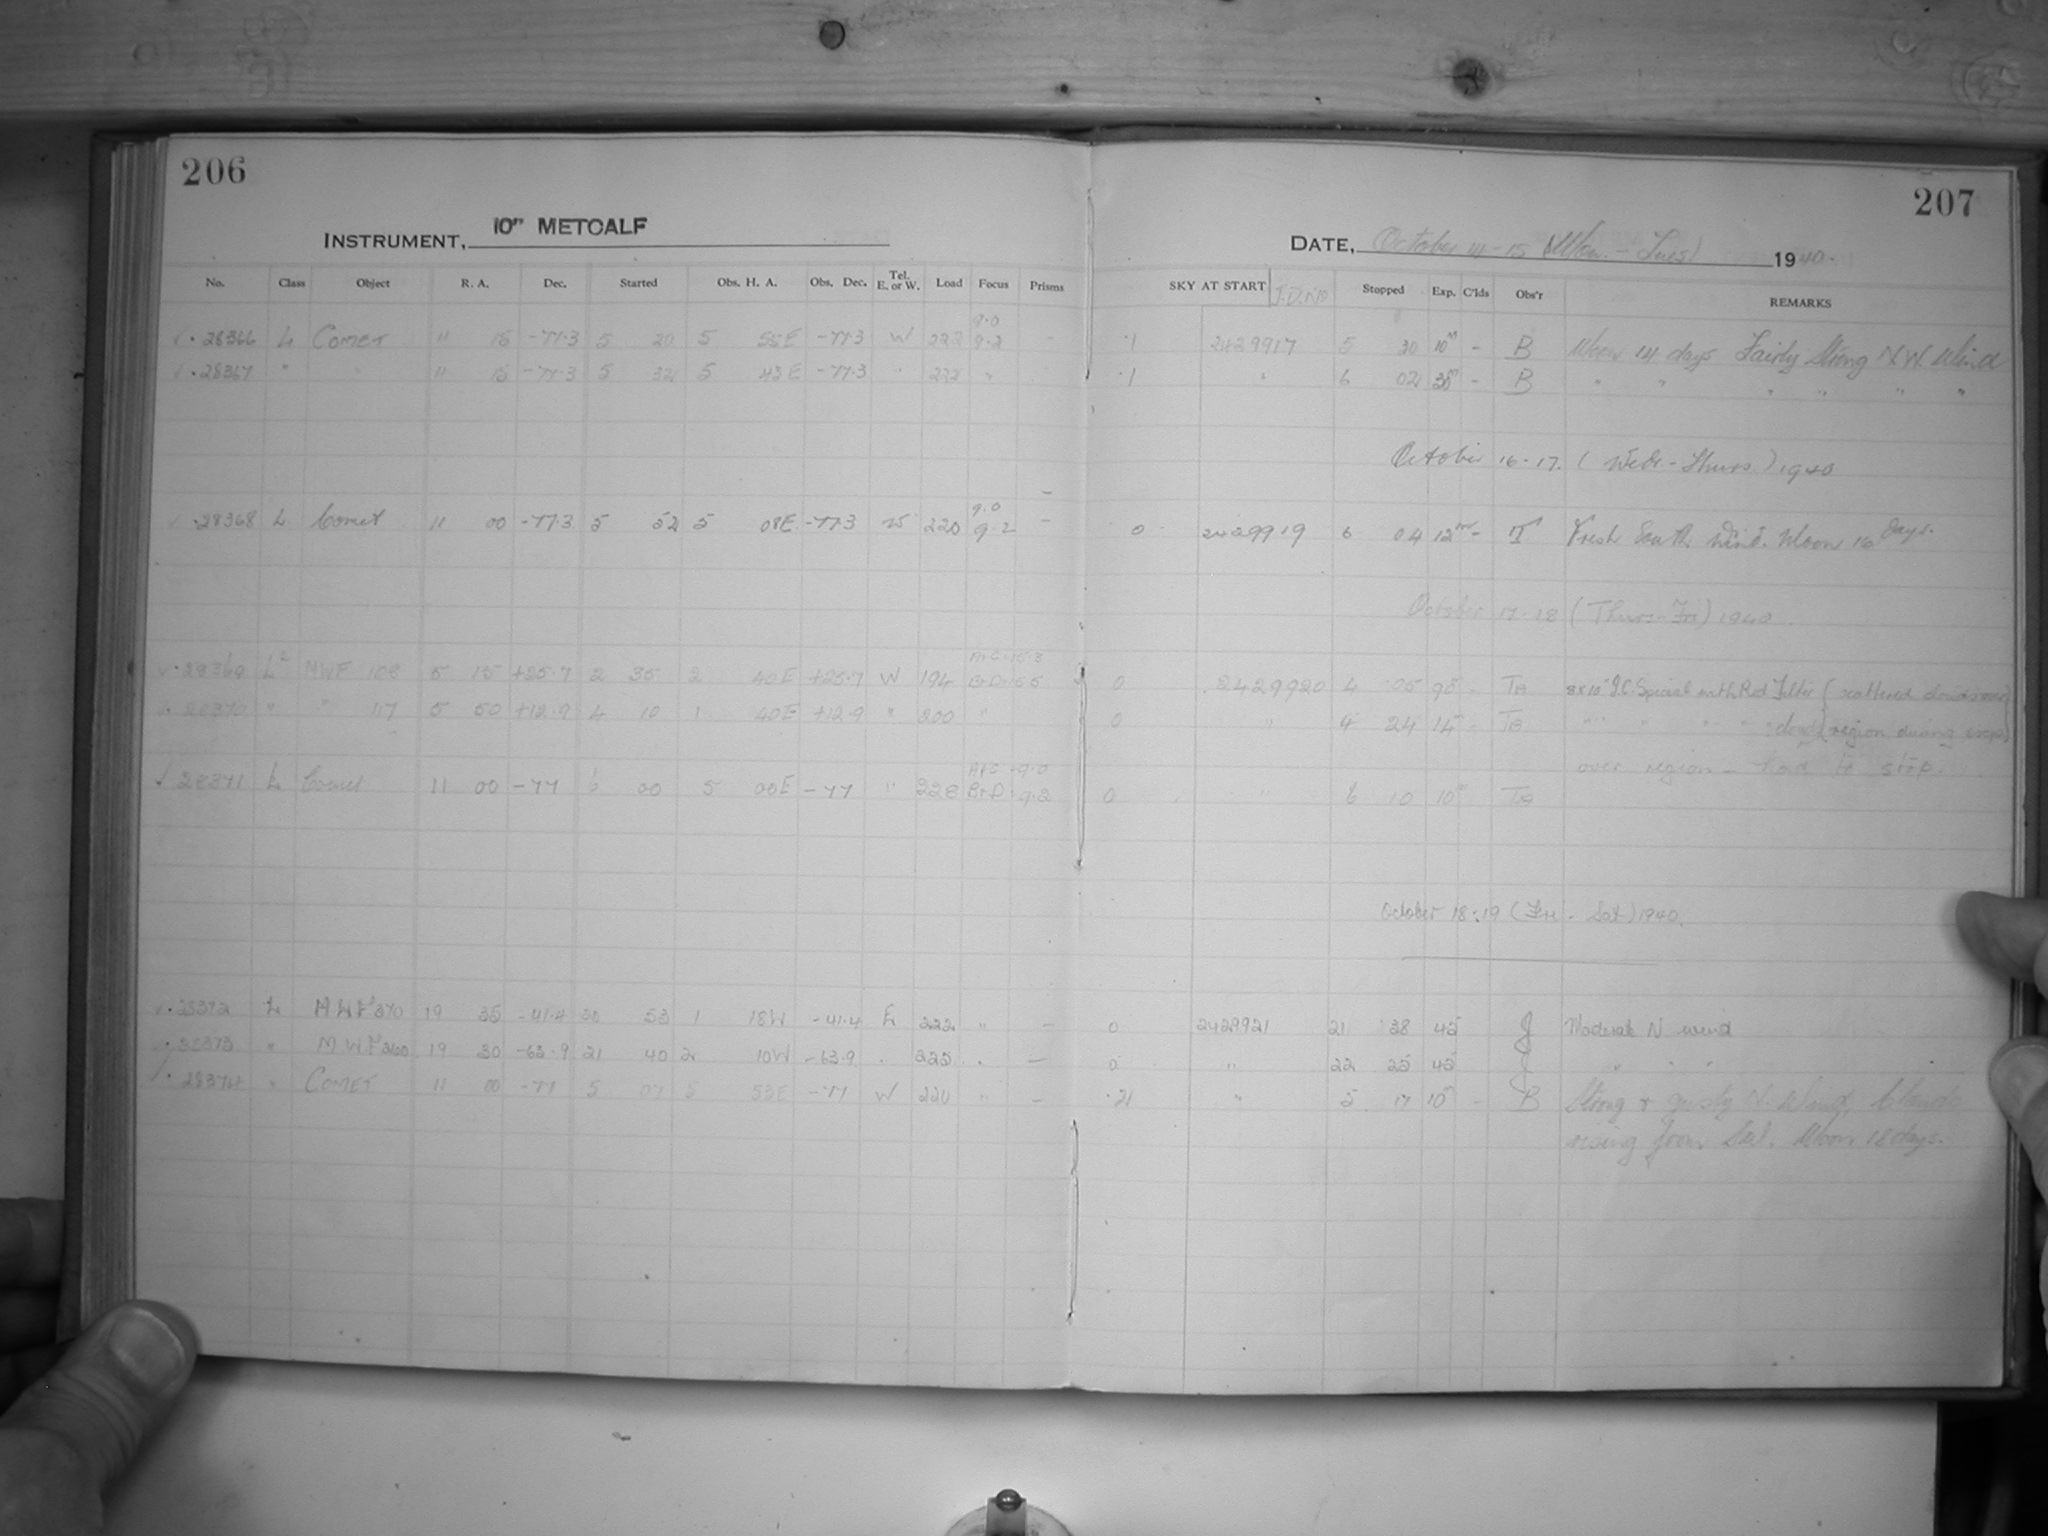 206
207
INSTRUMENT, 10" METCALF
DATE, October 14-15 (Mon. - Tues) 1940.
No. Class Object R. A. Dec. Started Obs. H. A. Obs. Dec. Tel. E. or W. Load Focus Prisms SKY AT START J.D. No Stopped Exp. C'lds Obs'r REMARKS
9.0
28366 L COMET 11 15 -77.3 5 20 5 55E -77.3 W 222 9.2 - .1 2429917 5 30 10m - B Moon 14 days Fairly Strong N.W. Wind
28367 " " 11 15 -77.3 5 32 5 43E -77.3 " 222 " .1 " 6 02 30m - B " " " " " "
October 16-17. (Wed. - Thurs.) 1940
9.0
28368 L Comet 11 00 -77.3 5 52 5 08E -77.3 W 220 9.2 - 0 2429919 6 04 12m - T Fresh South Wind. Moon 16 days.
October 17-18 (Thurs-Fri) 1940
28369 L2 MWF 108 5 15 +25.7 2 35 2 40E +25.7 W 194 0 2429920 4 05 90 - TB 8x10" I.C. Special with Red Filter (scattered clouds over
28370 " " 117 5 50 +12.9 4 10 1 40E +12.9 " 200 " 0 " 4 24 14 - TB " " " " " : clouds (region during exp.)
over region - had to stop.
28371 L Comet 11 00 -77 6 00 5 00E -77 " 228 A+C 9.0 B+D 9.2 0 " 6 10 10m TB
October 18-19 (Fri - Sat) 1940.
28372 L MWF 370 19 35 -41.4 20 53 1 18W -41.4 E 222 " - 0 2429921 21 38 45 J Moderate N wind
28373 " MWF 360 19 30 -63.9 21 40 2 10W -63.9 " 225 " - 0 " 22 25 45 J " " "
28374 " COMET 11 00 -77 5 07 5 53E -77 W 220 " - .21 " 5 17 10 - B Strong & gusty N. Wind, Clouds
rising from Sat. Moon 18 days.